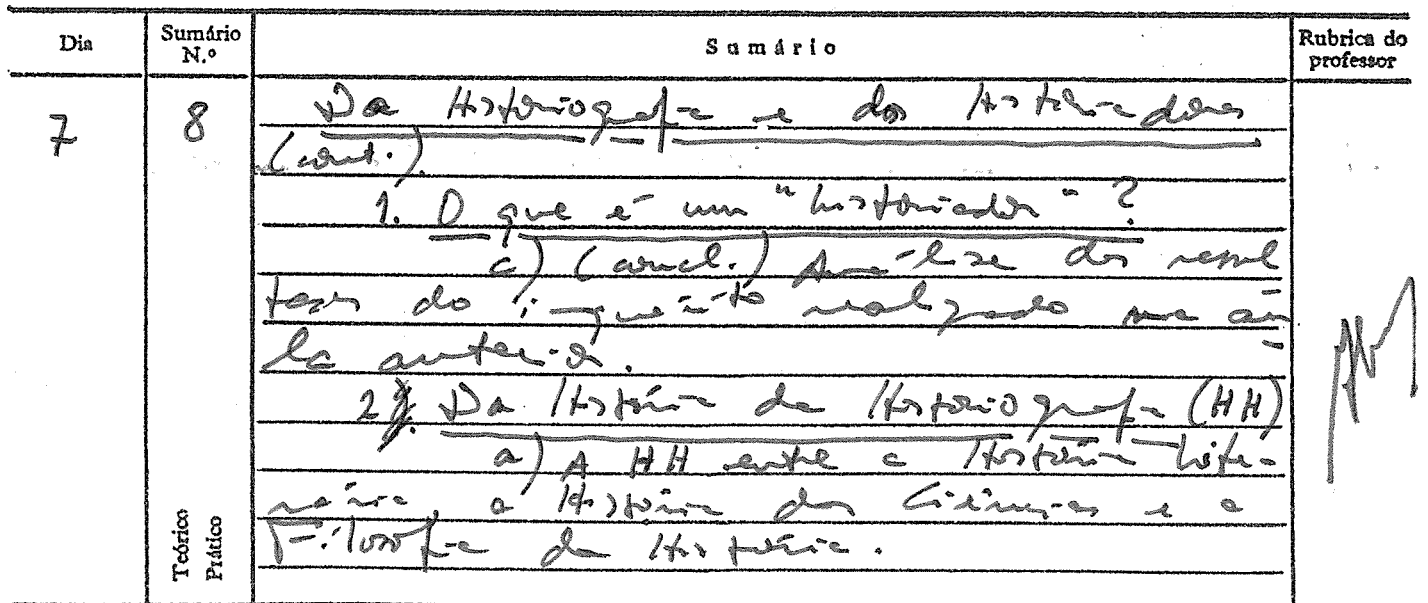 Dia Sumário N.º Sumário Rubrica do professor
7 8 Da Historiografia e dos Historiadores
(cont.)
1. O que é um "historiador"?
c) (concl.) Análise dos resul
tados do inquérito realizado na au
la anterior.
2. Da História da Historiografia (HH)
a) A HH entre a História Lite-
rária, a História das Ciências e a
Filosofia da História.
Teórico
Prático